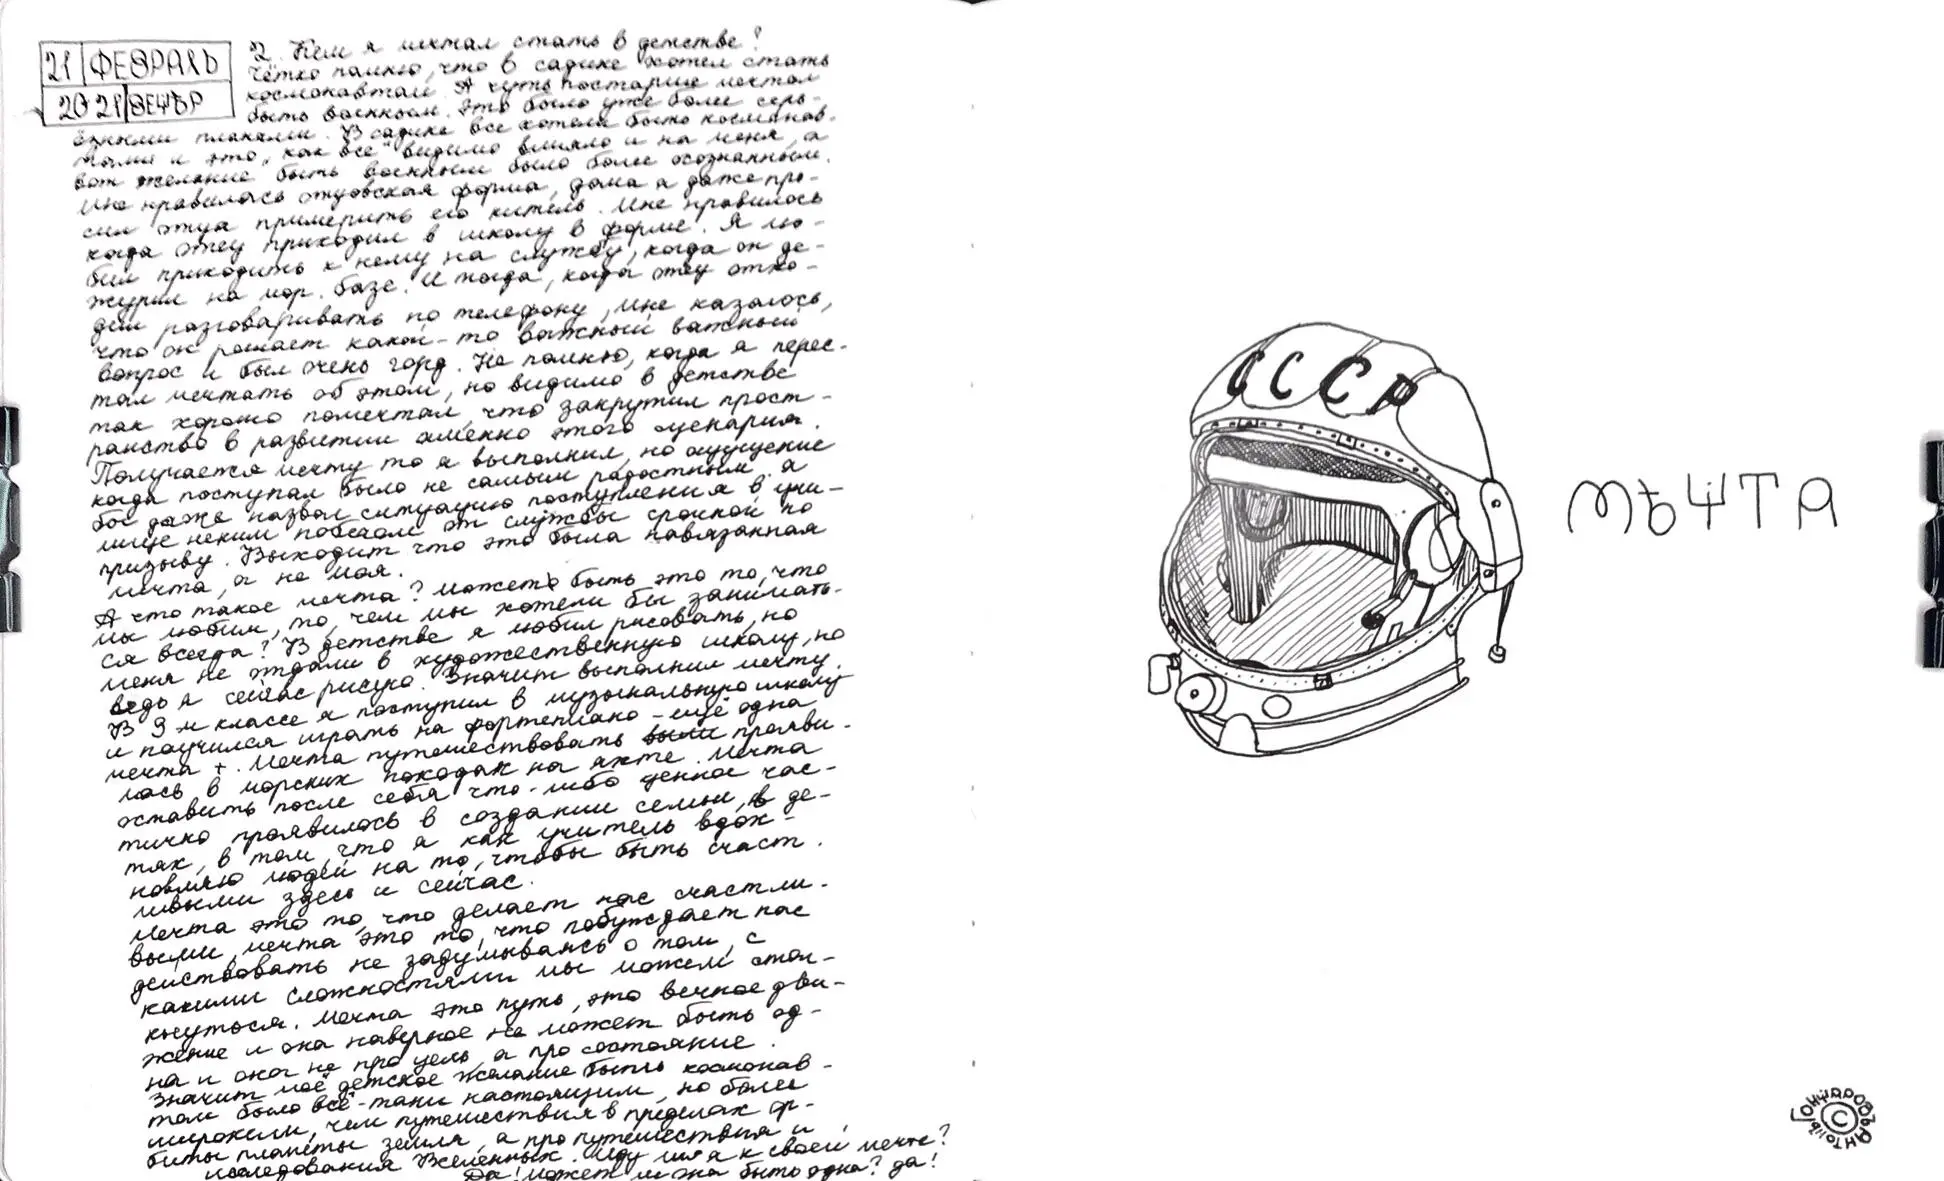 21 ФЕВРАЛЬ
2021 ВЕЧѢР
2. Кем я мечтал стать в детстве?
Чётко помню, что в садике хотел стать
космонавтом. А чуть постарше мечтал
быть военным. Это было уже более серь-
ёзными планами. В садике все хотели было космонав-
тами и это, "как все" видимо влияло и на меня, а
вот желание быть военным было более осознанным.
Мне нравилась отцовская форма, дома я даже про-
сил отца примерить его китель. Мне нравилось
когда отец приходил в школу в форме. Я лю-
бил приходить к нему на службу, когда он де-
журил на мор. базе. И тогда, когда отец отхо-
дил разговаривать по телефону, мне казалось,
что он решает какой-то важный важный
вопрос и был очень горд. Не помню, когда я перес-
тал мечтать об этом, но видимо в детстве
так хорошо помечтал, что закрутил прост-
ранство в развитии именно этого сценария.
Получается мечту то я выполнил, но ощущение
когда поступал было не самым радостным, а
бог даже назвал ситуацию поступления в учи-
лище неким побегом от службы срочной по
призыву. Выходит что это была навязанная
мечта, а не моя.
А что такое мечта? Может быть это то, что
мы любим, то, чем мы хотели бы занимать-
ся всегда? В детстве я любил рисовать, но
меня не отдали в художественную школу, но
ведь я сейчас рисую. Значит выполнил мечту.
В 9 м классе я поступил в музыкальную школу
и научился играть на фортепиано - ещё одна
мечта +. Мечта путешествовать прояви-
лась в морских походах на яхте. Мечта
оставить после себя что-либо ценное час-
тично проявилось в создании семьи, в де-
тях, в том, что я как учитель вдох-
новляю людей на то, чтобы быть счаст.
ливыми здесь и сейчас.
Мечта это то, что делает нас счастли-
выми, мечта это то, что побуждает нас
действовать не задумываясь о том, с
какими сложностями мы можем стол-
кнуться. Мечта это путь, это вечное дви-
жение и она наверное не может быть од-
на и она не про цель, а про состояние.
Значит моё детское желание быть космонав-
том было всё-таки настоящим, но более
широким, чем путешествия в пределах ор-
биты планеты земля, а про путешествия и
исследования Вселенных. Иду ли я к своей мечте?
Да! Может ли она быть одна? Да!
СССР
МѢЧТА
ГОНЧАРОВЪ АНТОЛІЙ ©